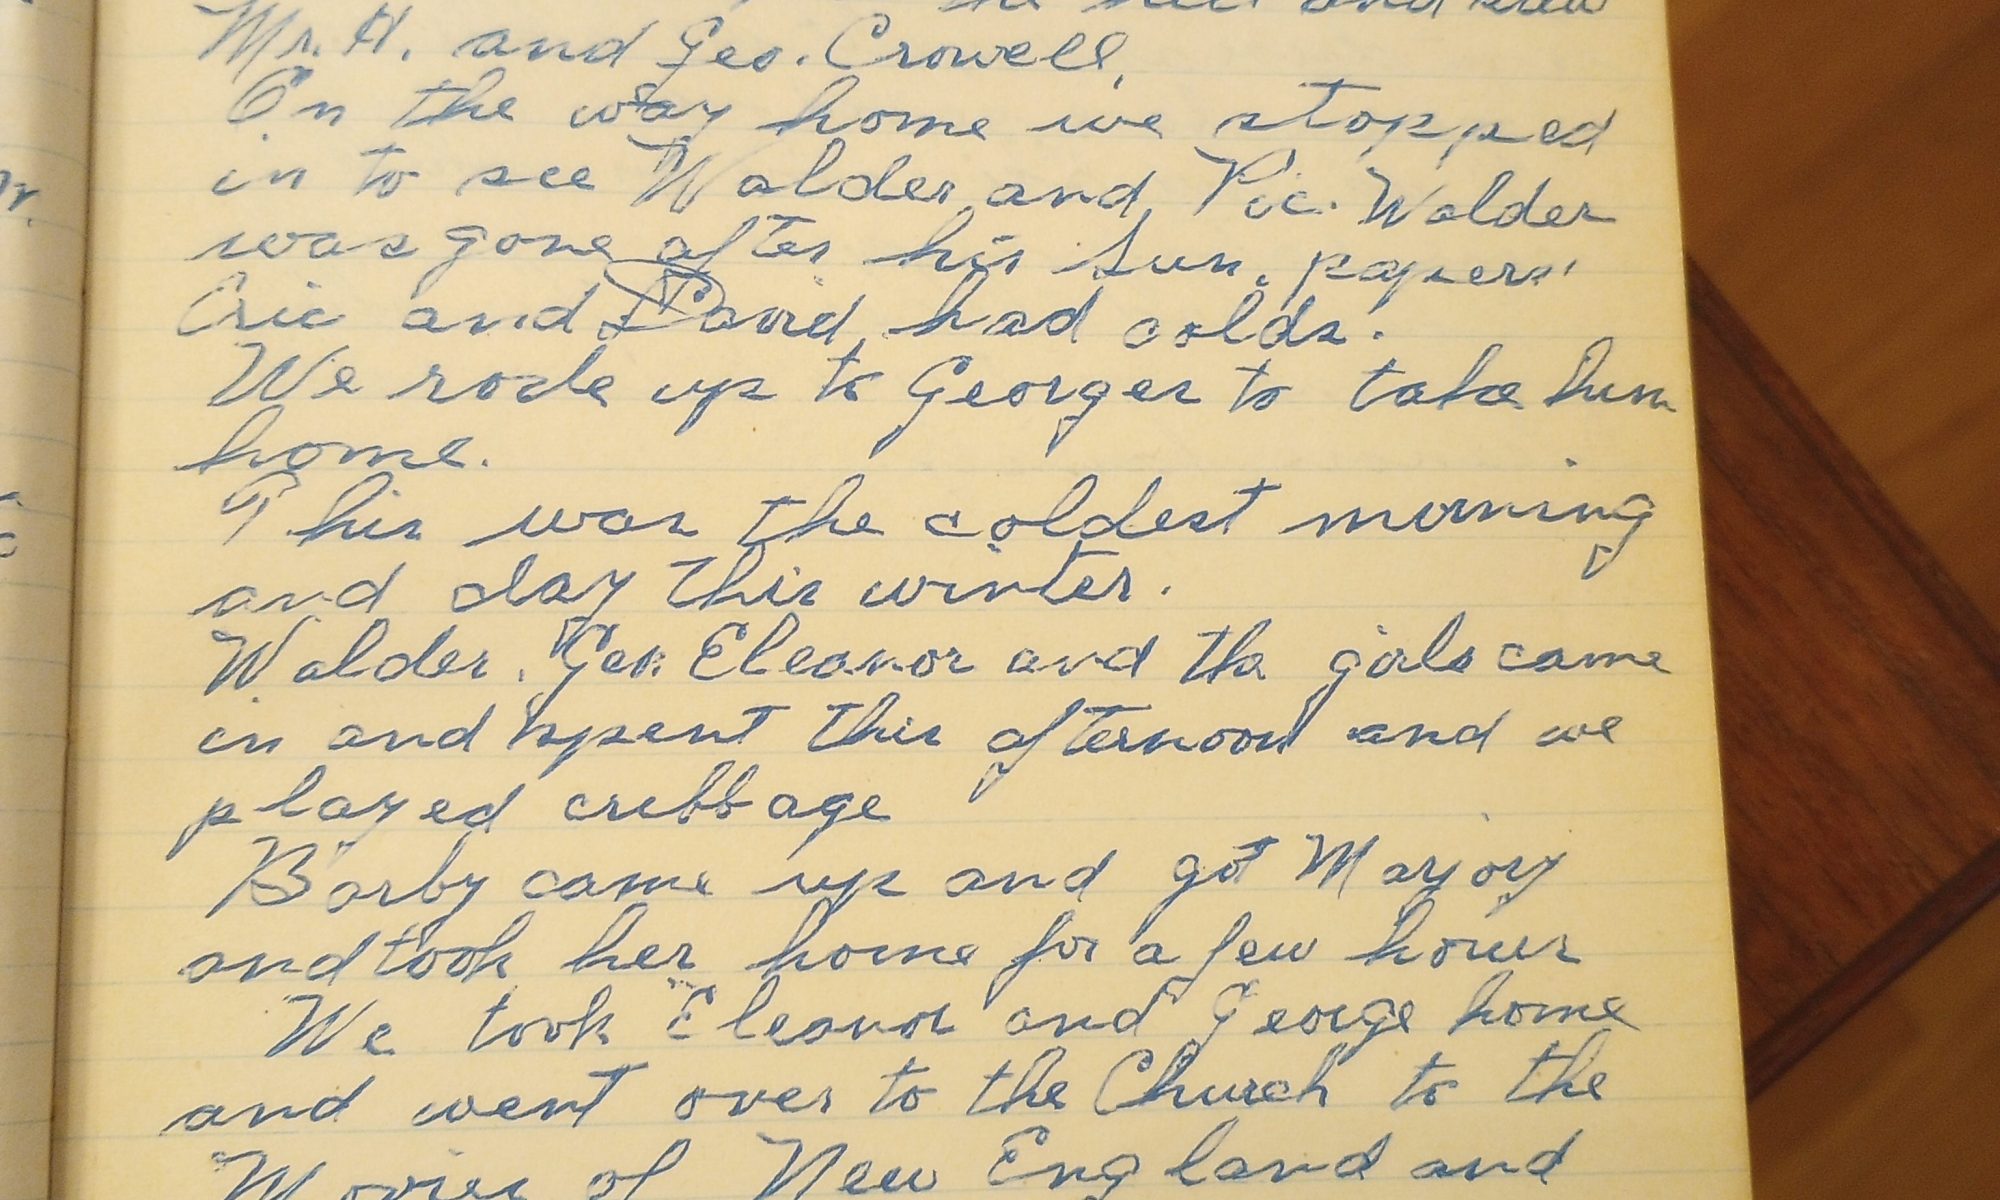 and
Mr. H. and Geo. Crowell.
On the way home we stopped
in to see Walder and Vic. Walder
was gone after his Sun. papers.
Eric and David had colds.
We rode up to Georges to take him
home.
This was the coldest morning
and day this winter.
Walder. Geo. Eleanor and the girls came
in and spent this afternoon and we
played cribbage
Barby came up and got Marjory
and took her home for a few hours
We took Eleanor and George home
and went over to the Church to the
Movies of New England and